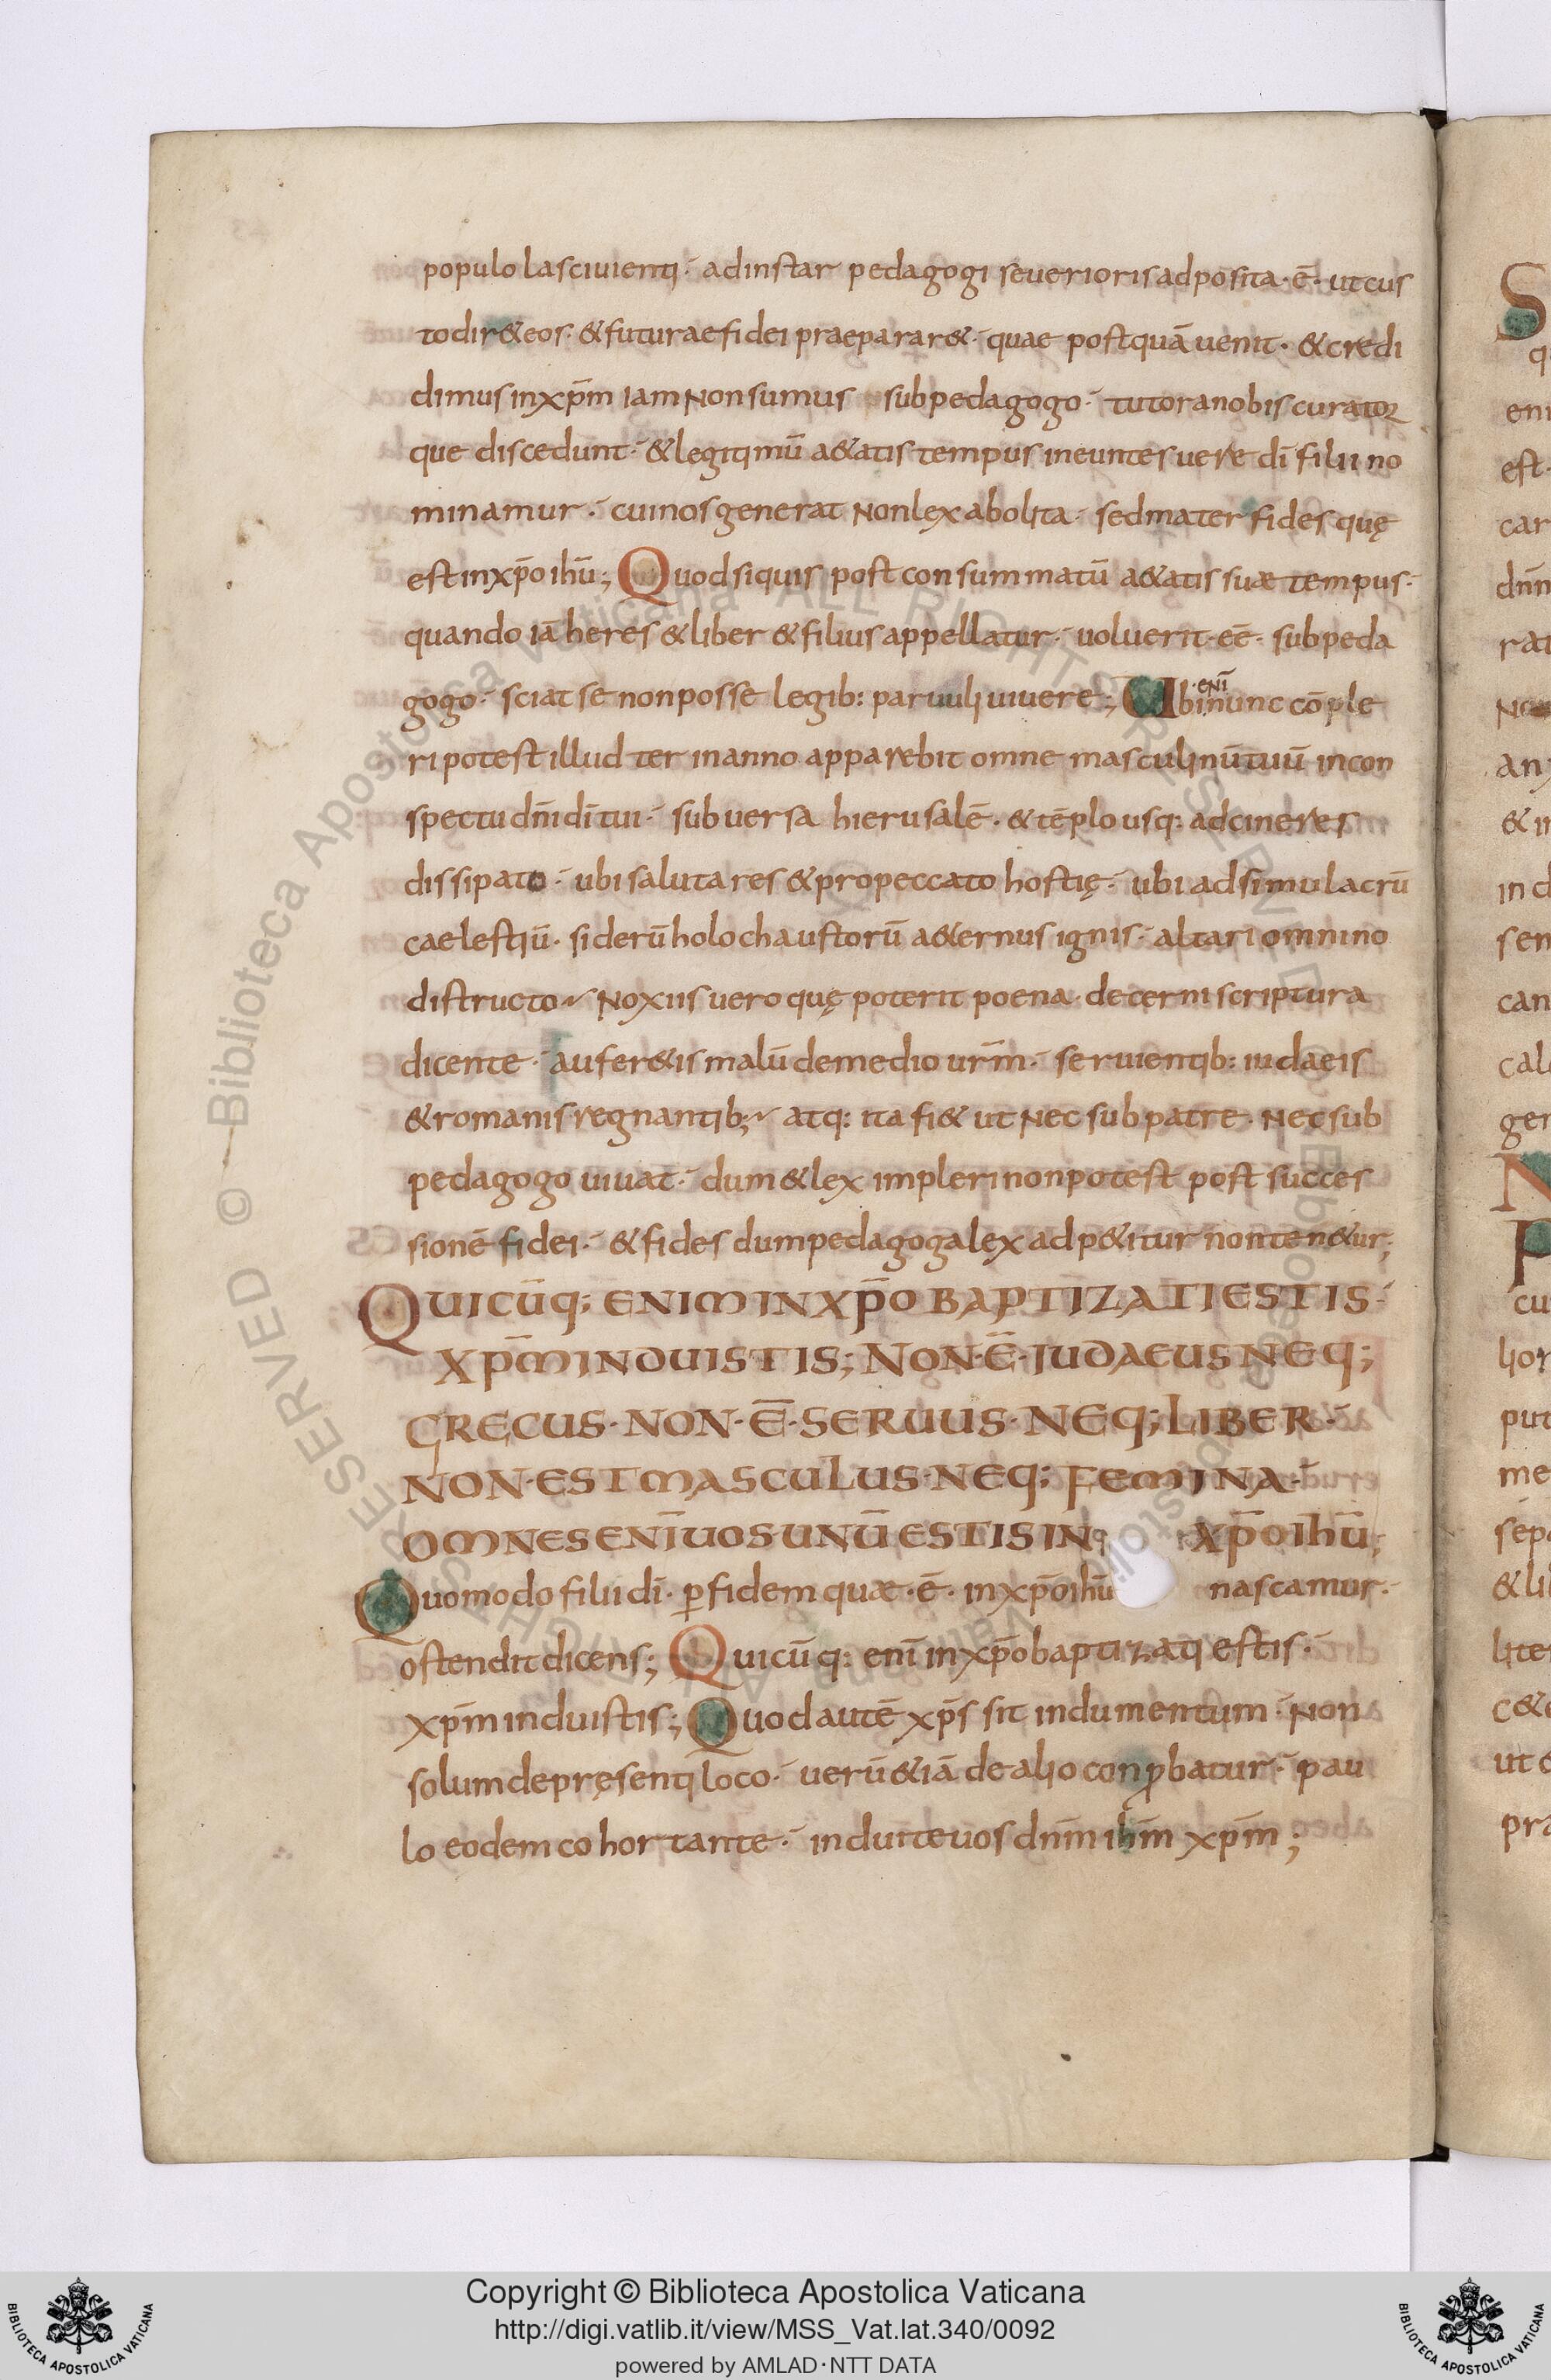 populo lasciuienti· ad instar pedagogi seuerioris adposita·ē· ut cus
todir&eos· &futurae fidei praeparar&· quae postquā uenit· & credi
dimus in xp̄m iam non sumus sub pedagogo· tutor a nobis curator
que discedunt· & legitimū a&atis tempus ineuntes uere dī filii no
minamur· cui nos generat non lex abolita· sed mater fides quę
est in xp̄o ihū; Quod si quis post consummatū a&atis suæ tempus·
quando iā heres & liber & filius appellatur· uoluerit·eē· sub peda
gogo· sciat se non posse legib: paruuli uiuere; Ubi ·enī nunc cōple
ri potest illud ter in anno apparebit omne masculinū tuū in con
spectu dn̄i dī tui· subuersa hierusalē· & tēplo usq: ad cineres
dissipato· ubi salutares & pro peccato hostię· ubi ad simulacrū
caelestiū· siderū holochaustorū a&ernus ignis· altari omnino
distructo· Noxiis uero quę poterit poena· decerni scriptura
dicente· aufer&is malū de medio urm̄· seruientib: iudaeis
& romanis regnantib;· atq: ita fi& ut nec sub patre· nec sub
pedagogo uiuat· dum & lex impleri non potest post succes
sionē fidei· & fides dum pedagoga lex adp&itur non ten&ur;
QUICŪQ; ENIM IN XP̄O BAPTIZATI ESTIS·
XP̄M INDUISTIS; NON·Ē·IUDAEUS NEQ;
GRECUS·NON·Ē·SERUUS·NEQ; LIBER·
NON·EST MASCULUS·NEQ; FEMINA·
OMNES ENĪ UOS·UNŪ ESTIS IN XP̄O IHŪ;
Quomodo filii dī· ꝑ fidem quæ·ē· in xp̄o ihū nascamur·
ostendit dicens; Quicūq: enī in xp̄o baptizati estis·
xp̄m induistis; Quod autē xp̄s sit indumentum· Non
solum de pręsenti loco· uerū &iā de alio conꝓbatur· pau
lo eodem cohortante· induite uos dn̄m ihm̄ xp̄m;
Copyright © Biblioteca Apostolica Vaticana
http://digi.vatlib.it/view/MSS_Vat.lat.340/0092
powered by AMLAD·NTT DATA